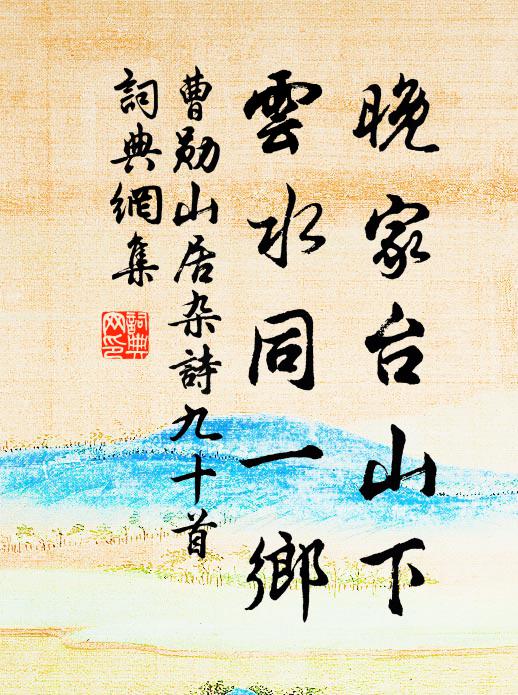 晚家台山下
雲水同一鄉
曹勛山居杂詩九十首
詞典網集
詞典网印